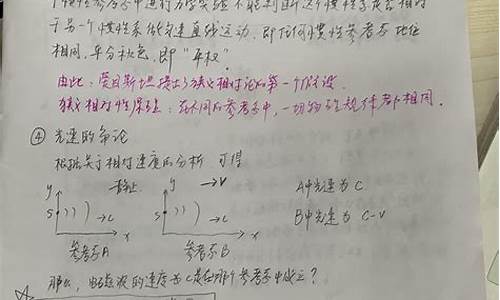 个惯性参考系中进行力学实验不能判断这个惯性系是否相对
于另一个惯性系做匀速直线运动，即任何惯性参考系地位
相同，平分秋色，即“平权”。
由此：爱因斯坦提出了狭义相对论的第一个假设
狭义相对性原理：在不同的参考系中，一切物理规律都相同．
④ 光速的争论
根据关于相对速度的分析 可得
y 静止 y →V A中光速为 C
S )) ) →C S )) ) →C B中光速为 C-V
x x
参考系A 参考系B
那么，电磁波的速度为c是在哪个参考系中成立？